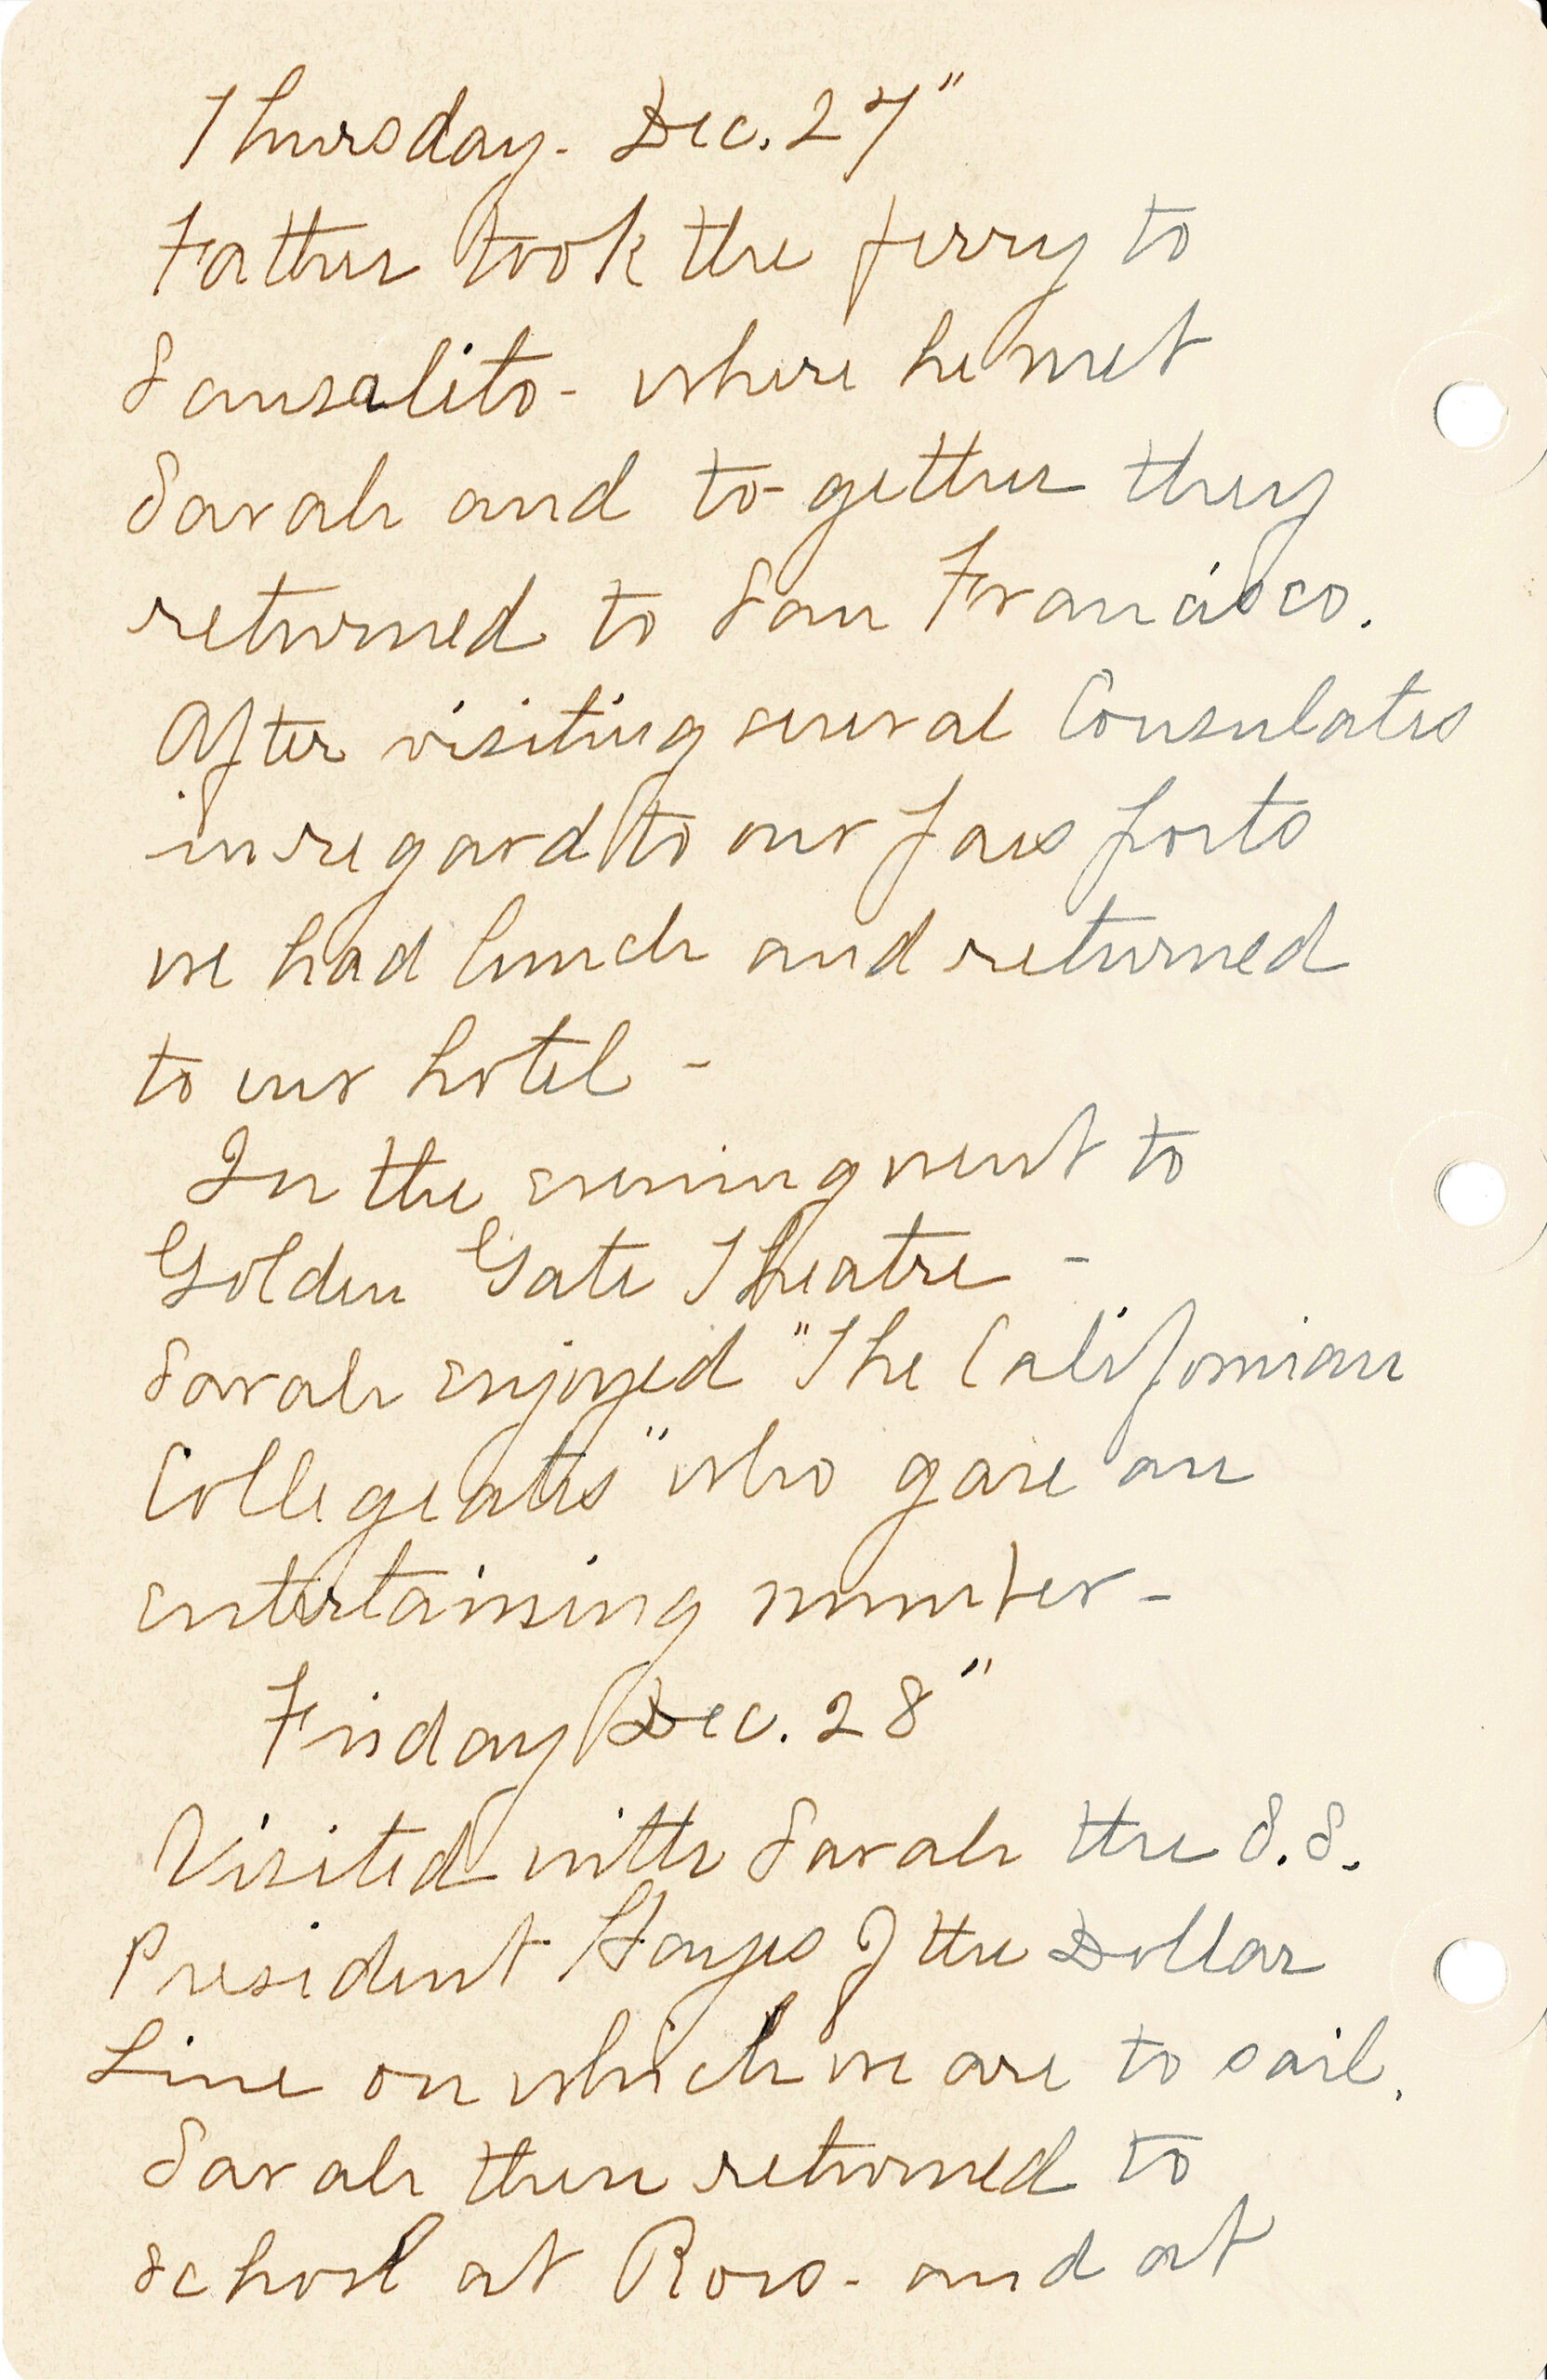 Thursday. Dec. 27"
Father took the ferry to
Sausalito - where he met
Sarah and to-gether they
returned to San Francisco.
After visiting several Consulates
in regard to our passports
we had lunch and returned
to our hotel -
In the evening went to
Golden Gate Theatre -
Sarah enjoyed "The Californian
Collegeates" who gave an
entertaining number -
Friday Dec. 28"
Visited with Sarah the S.S.
President Hayes of the Dollar
Line on which we are to sail.
Sarah then returned to
school at Ross - and at